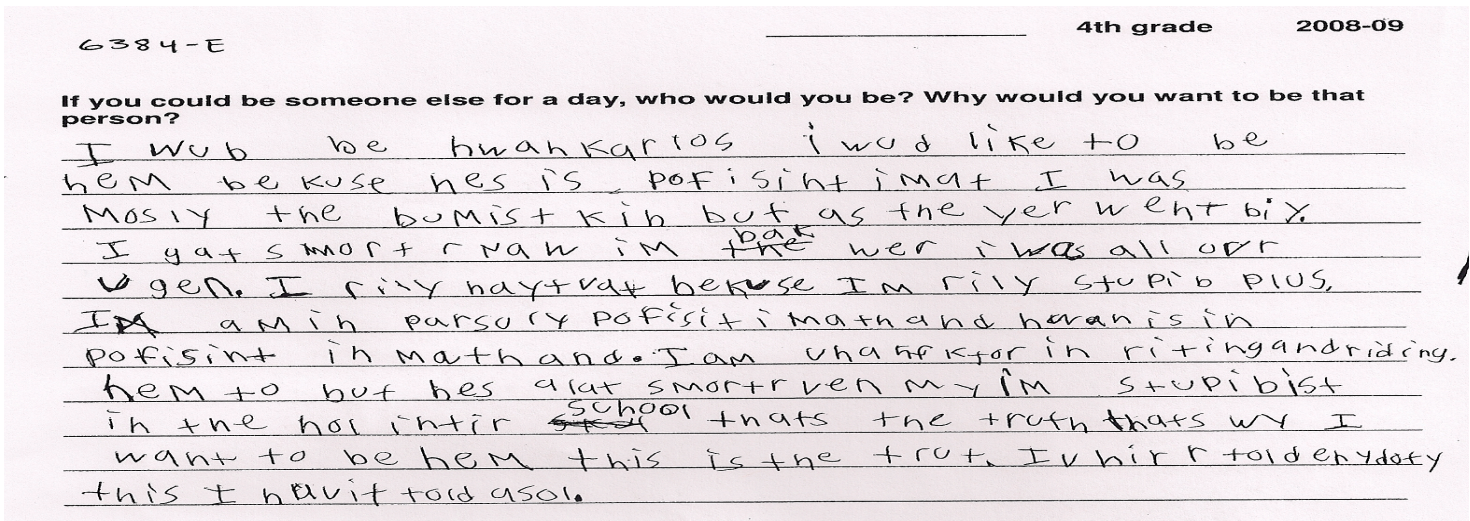 6384-E
4th grade 2008-09
If you could be someone else for a day, who would you be? Why would you want to be that
person?
I wub be hwankarlos i wud like to be
hem be kuse hes is pofisint imat I was
Mosly the bumist kib but as the yer went biy.
I gat smort r naw im bak wer i was all ovr
u gen. I rily haytvat bekuse IM rily stupib plus,
IM amin parsury pofisit i math and hwan is in
pofisint in math and. I am in ritingandriding.
hem to but hes alat smortr ven my im stupibist
in the hol intir school thats the truth thats wy I
want to be hem this is the trut. Iv hirr told enydoty
this I havit told asol.